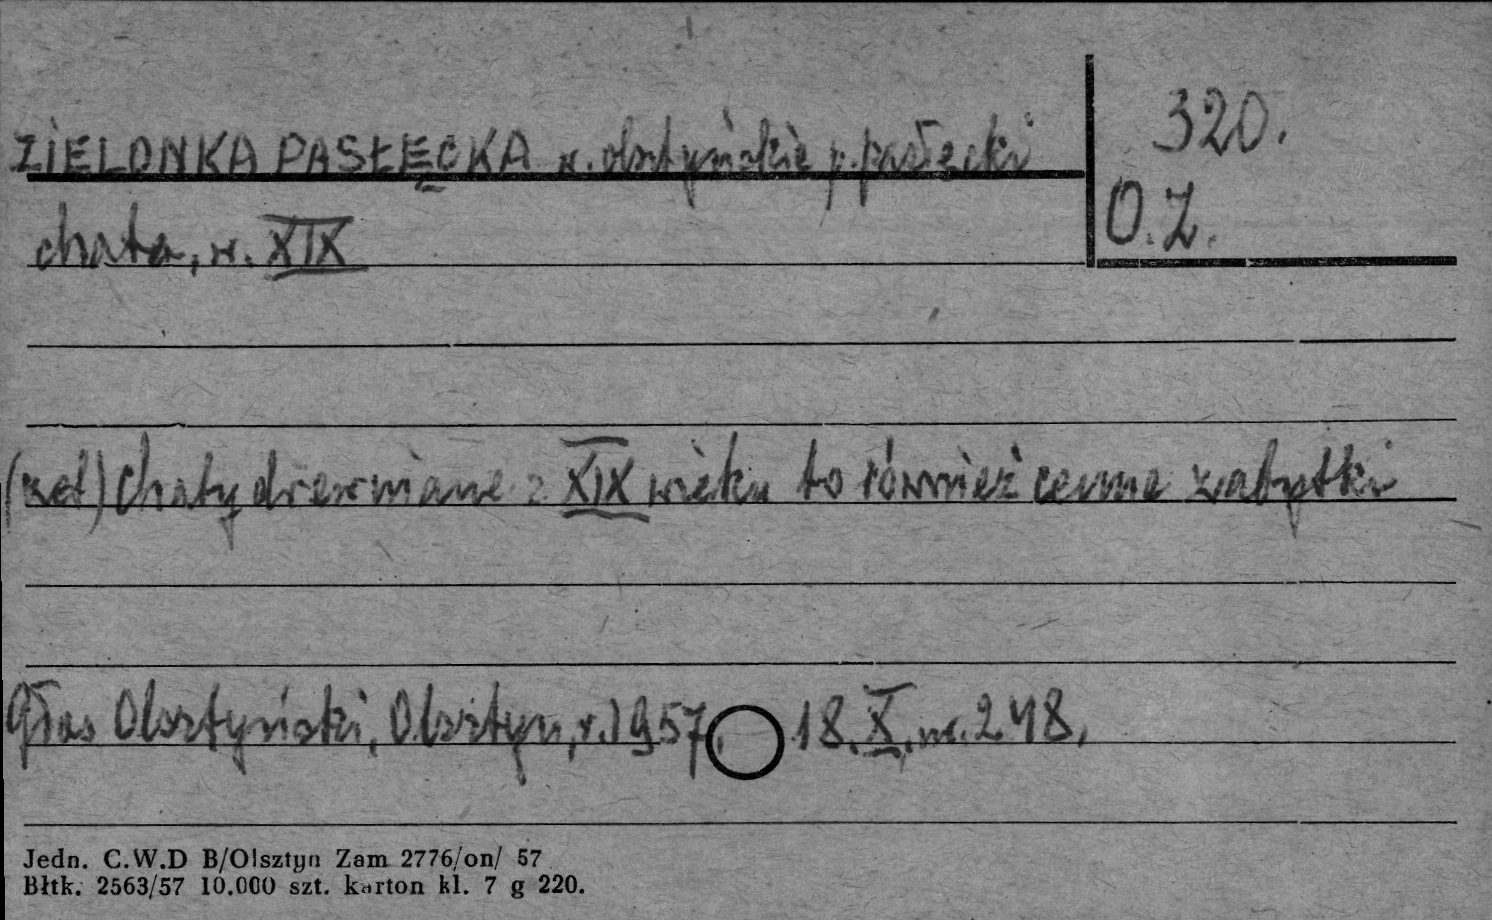 ZIELONKA PASŁĘCKA w. olsztyńskie p. pasłęcki
320.
O.Z.
chata, w. XIX
(zet) Chaty drewniane z XIX wieku to również cenne zabytki
Głos Olsztyński, Olsztyn, r. 1957, 18. X, nr. 248,
Jedn. C.W.D B/Olsztyn Zam 2776/on/ 57
Błtk. 2563/57 10.000 szt. karton kl. 7 g 220.